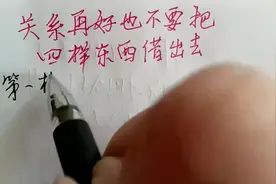 关系再好也不要把
四样东西借出去
第一